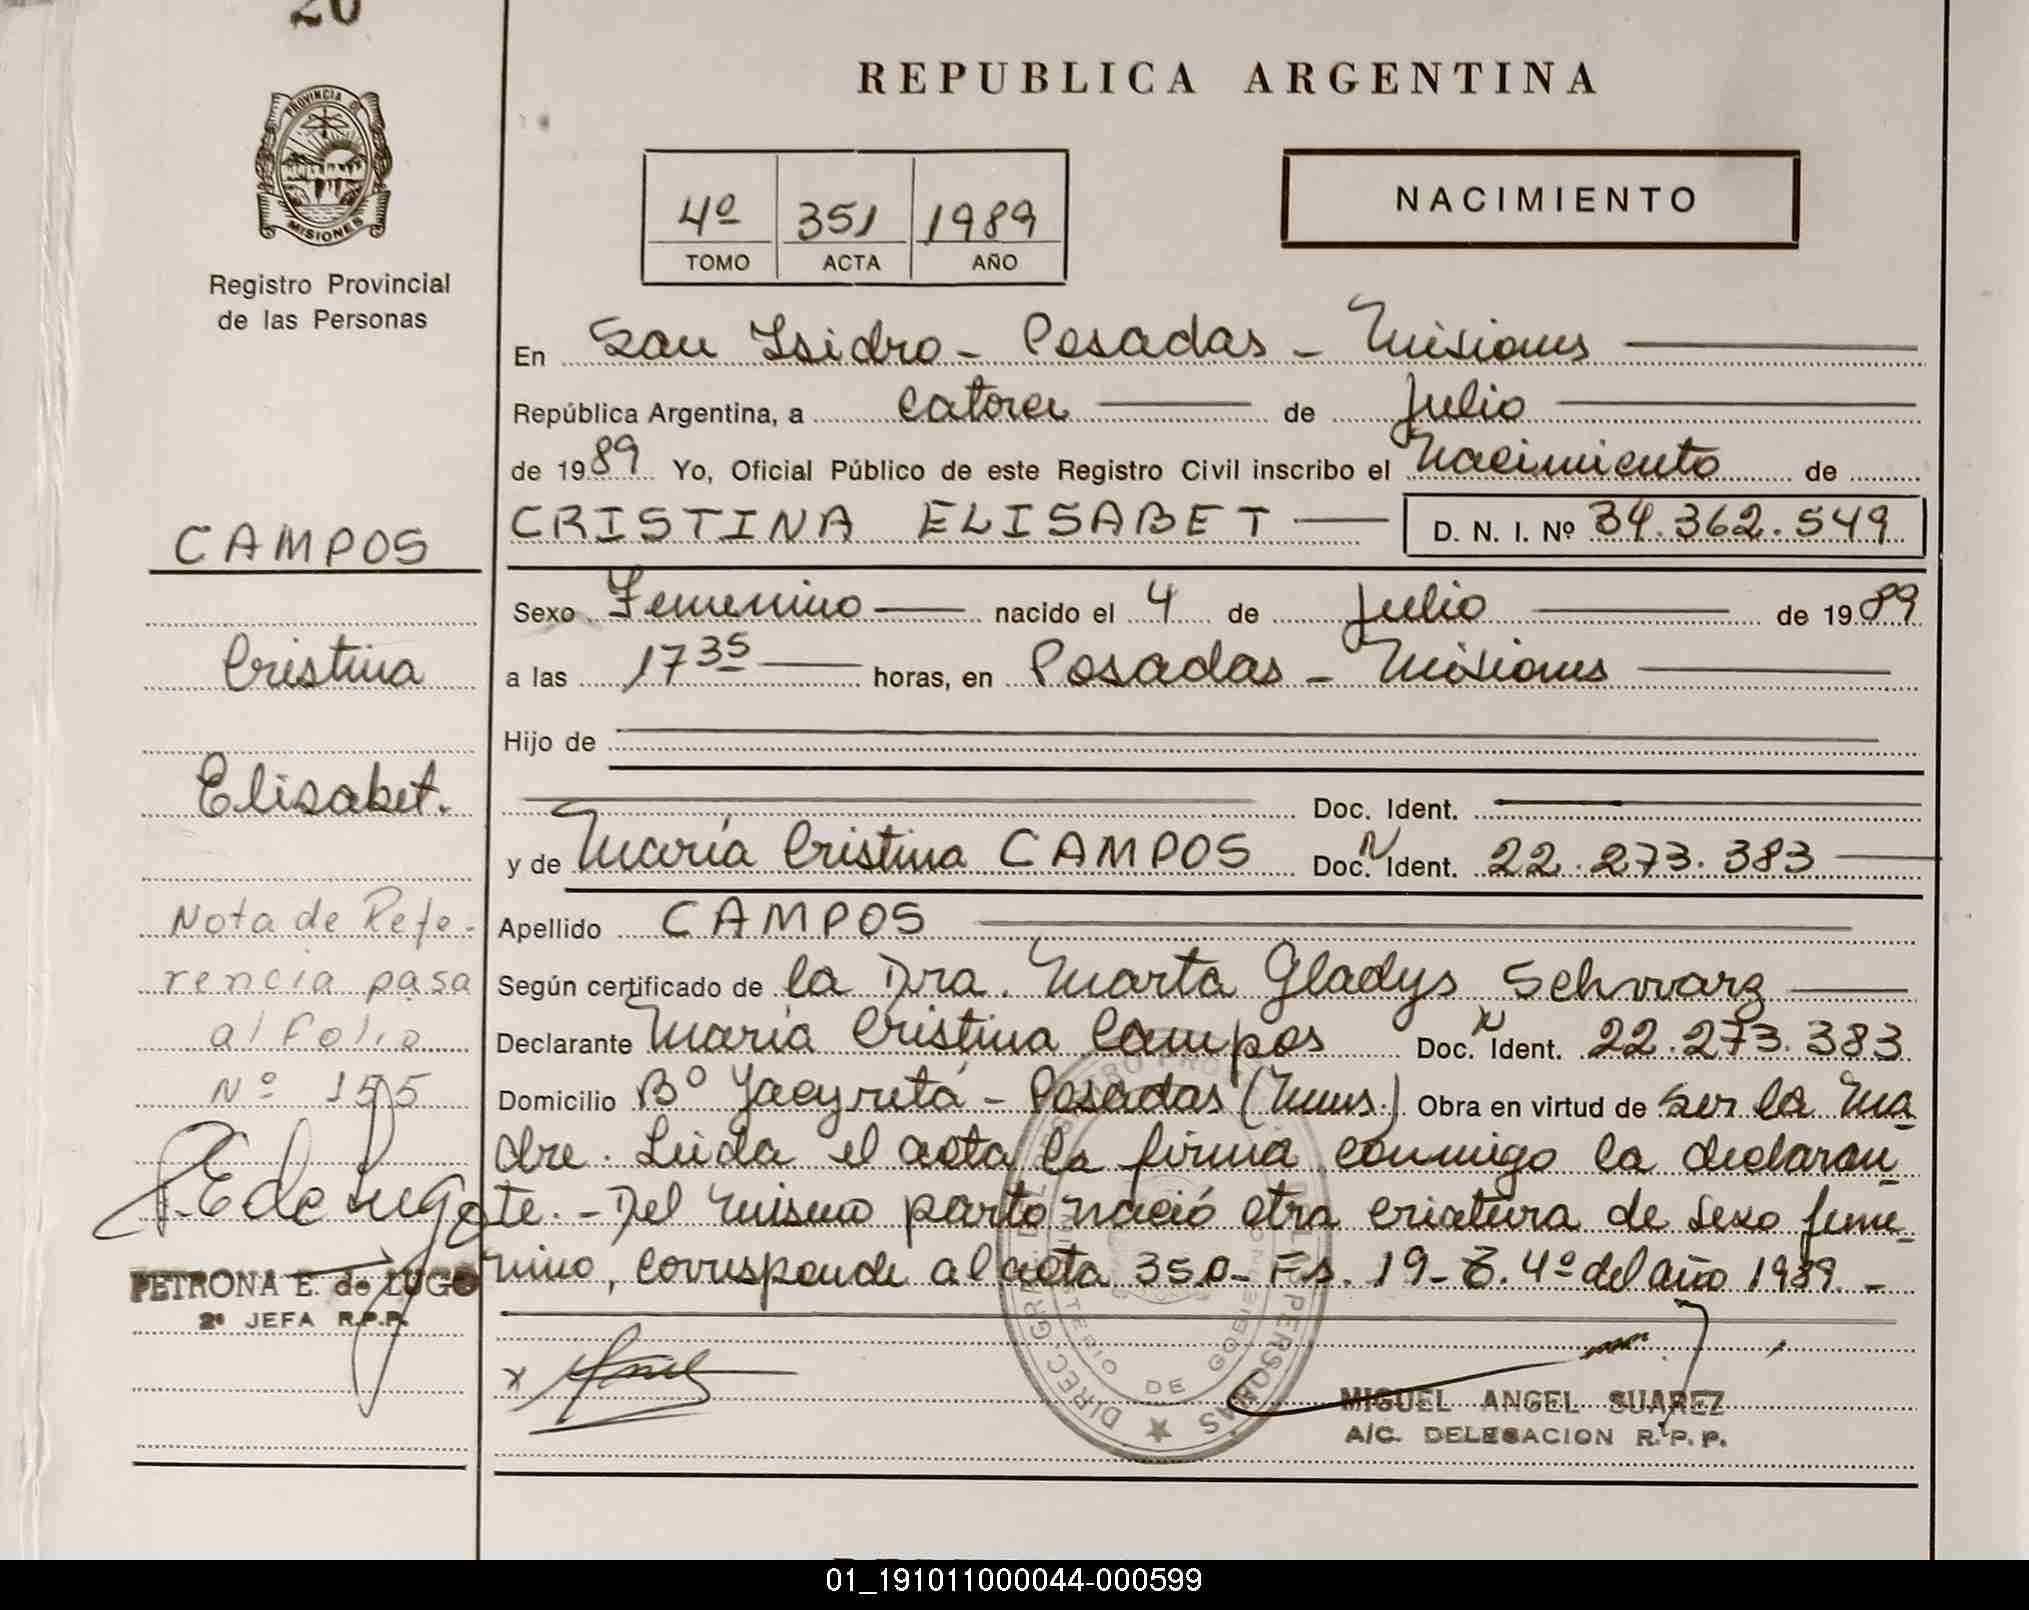 20
REPUBLICA ARGENTINA
PROVINCIA DE
MISIONES
Registro Provincial
de las Personas
4º 351 1989
TOMO ACTA AÑO
NACIMIENTO
En San Isidro - Posadas - Misiones
República Argentina, a catorce de Julio
de 1989 Yo, Oficial Público de este Registro Civil inscribo el Nacimiento de
CRISTINA ELISABET D. N. I. Nº 34.362.549
Sexo Femenino nacido el 4 de Julio de 1989
a las 17 35 horas, en Posadas - Misiones
Hijo de
Doc. Ident.
y de María Cristina CAMPOS Doc. N Ident. 22.273.383
Apellido CAMPOS
Según certificado de la Dra. Marta Gladys Schwarz
Declarante María Cristina Campos Doc. N Ident. 22.273.383
Domicilio Bº Yacyretá - Posadas (Mnes.) Obra en virtud de ser la ma
dre. Leida el acta la firma conmigo la declaran
te. - Del mismo parto nació otra criatura de sexo feme
nino, corresponde al acta 350 - Fs. 19 - T. 4º del año 1989. -
CAMPOS
Cristina
Elisabet.
Nota de Refe-
rencia pasa
al Folio
Nº 155
P. E de Lugo
PETRONA E. de LUGO
2ª JEFA R.P.P.
x
DE GOBIERNO
MIGUEL ANGEL SUAREZ
A/C. DELEGACION R.P.P.
01_191011000044-000599